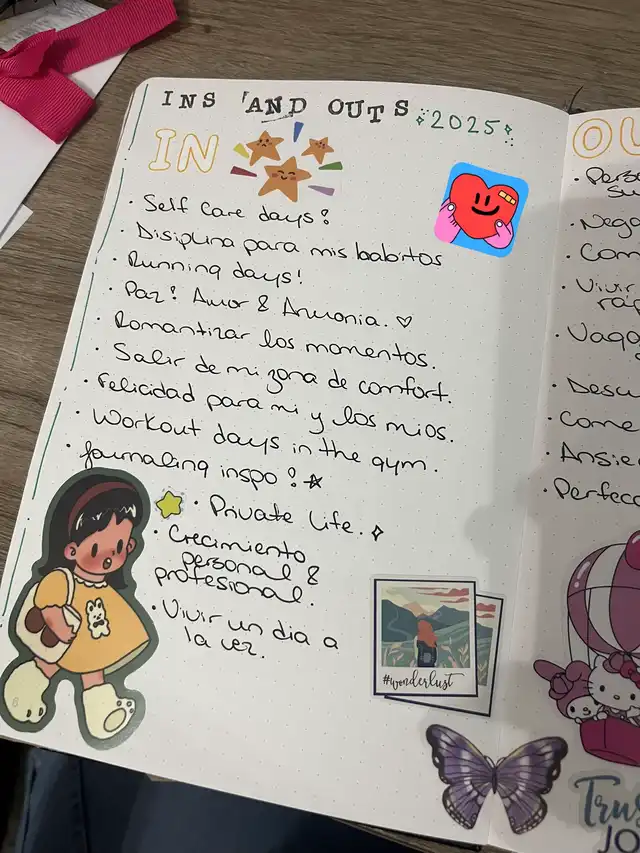 INS AND OUTS 2025
IN
· Self Care days!
· Disiplina para mis habitos
· Running days!
· Paz! Amor & Armonia. ♡
· Romantizar los momentos.
· Salir de mi zona de comfort.
· Felicidad para mi y los mios.
· Workout days in the gym.
· Journaling inspo! ☆
· Private Life.
· Crecimiento
personal &
profesional.
· Vivir un dia a
la vez.
#wonderlust
OU
· Perso
su
· Nega
· Com
· Vivir
ráp
· Vago
· Descu
· Come
· Ansie
· Perfecc
Trus
JO